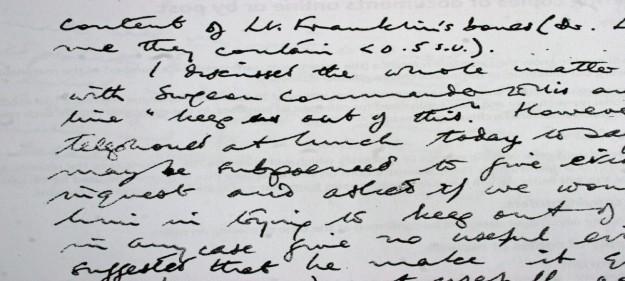 content of Lt. Franklin's bones (Dr. L
me they contain <0.5 s.u.).
I discussed the whole matter
with Surgeon Commander
line "keep us out of this." Howeve
telephoned at lunch today to say
may be subpoenaed to give evid
inquest and asked if we wou
him in trying to keep out of
in any case give no useful evi
suggested that he make it